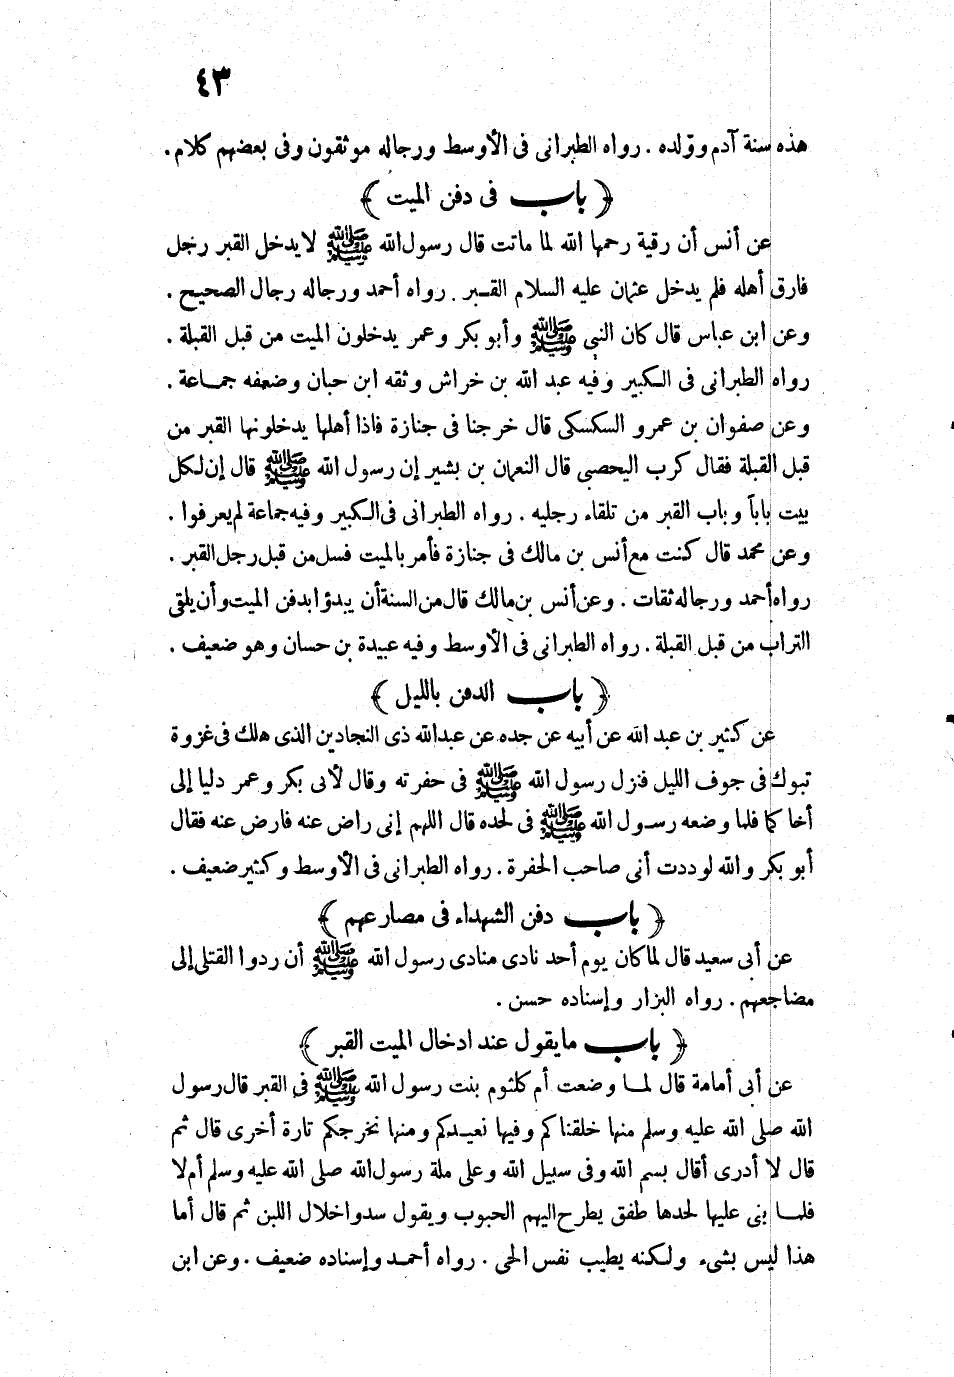 ٤٣
هذه سنة آدم وولده . رواه الطبرانى فى الأوسط ورجاله موثقون وفى بعضهم كلام .
﴿ باب فى دفن الميت ﴾
عن أنس أن رقية رحمها الله لما ماتت قال رسول الله ﷺ لا يدخل القبر رجل
فارق أهله فلم يدخل عثمان عليه السلام القبر . رواه أحمد ورجاله رجال الصحيح .
وعن ابن عباس قال كان النبي ﷺ وأبو بكر وعمر يدخلون الميت من قبل القبلة .
رواه الطبرانى فى الكبير وفيه عبد الله بن خراش وثقه ابن حبان وضعفه جماعة .
وعن صفوان بن عمرو السكسكى قال خرجنا فى جنازة فاذا أهلها يدخلونها القبر من
قبل القبلة فقال كرب اليحصبى قال النعمان بن بشير إن رسول الله ﷺ قال إن لكل
بيت باباً وباب القبر من تلقاء رجليه . رواه الطبرانى فى الكبير وفيه جماعة لم يعرفوا .
وعن محمد قال كنت مع أنس بن مالك فى جنازة فأمر بالميت فسل من قبل رجل القبر .
رواه أحمد ورجاله ثقات . وعن أنس بن مالك قال من السنة أن يبدؤا بدفن الميت وأن يلقى
التراب من قبل القبلة . رواه الطبرانى فى الأوسط وفيه عبيدة بن حسان وهو ضعيف .
﴿ باب الدفن بالليل ﴾
عن كثير بن عبد الله عن أبيه عن جده عن عبد الله ذى النجادين الذى هلك فى غزوة
تبوك فى جوف الليل فنزل رسول الله ﷺ فى حفرته وقال لأبى بكر وعمر دليا إلى
أخاكما فلما وضعه رسول الله ﷺ فى لحده قال اللهم إنى راض عنه فارض عنه فقال
أبو بكر والله لوددت أنى صاحب الحفرة . رواه الطبرانى فى الأوسط وكثير ضعيف .
﴿ باب دفن الشهداء فى مصارعهم ﴾
عن أبى سعيد قال لما كان يوم أحد نادى منادى رسول الله ﷺ أن ردوا القتلى إلى
مضاجعهم . رواه البزار وإسناده حسن .
﴿ باب ما يقول عند ادخال الميت القبر ﴾
عن أبى أمامة قال لما وضعت أم كلثوم بنت رسول الله ﷺ فى القبر قال رسول
الله صلى الله عليه وسلم منها خلقناكم وفيها نعيدكم ومنها نخرجكم تارة أخرى قال ثم
قال لا أدرى أقال بسم الله وفى سبيل الله وعلى ملة رسول الله صلى الله عليه وسلم أم لا
فلما بنى عليها لحدها طفق يطرح اليهم الحبوب ويقول سدوا خلال اللبن ثم قال أما
هذا ليس بشىء ولكنه يطيب نفس الحى . رواه أحمد وإسناده ضعيف . وعن ابن